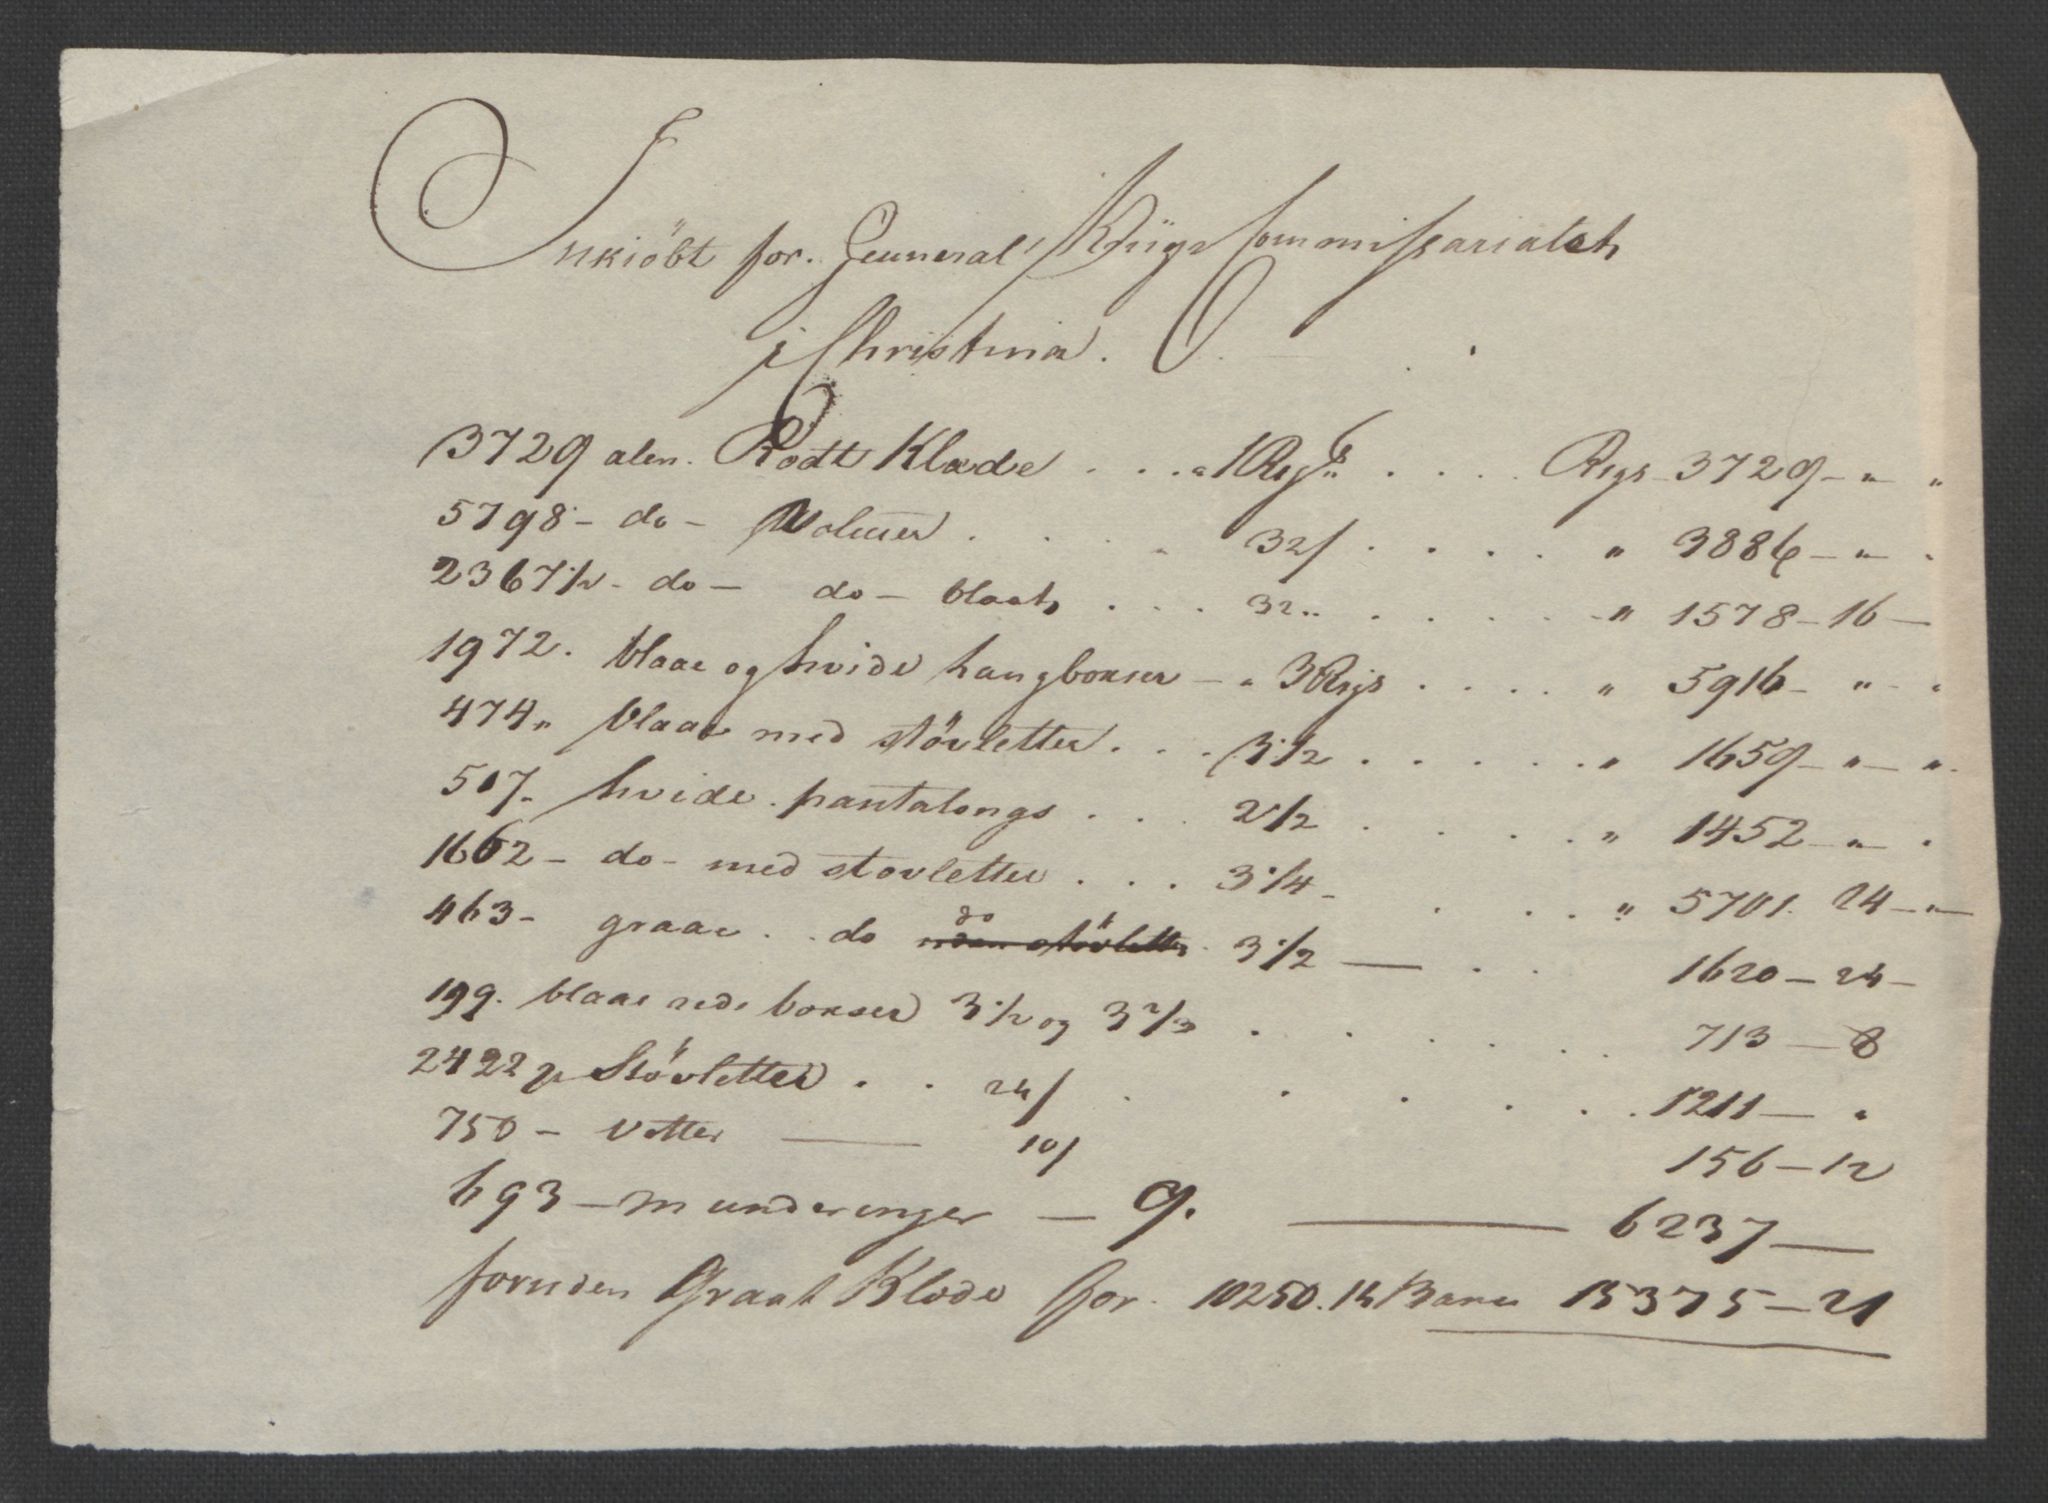 Inkiöbt for General Kriigs Commissariatet
i Christinia.
3729 alen. Rödt Klæde . . . a 1 Rigs . . . . Rigs 3729 - " "
5798 - do - Valmer . . . . 32/ . . . . " 3886 - " - .
2367 1/2 - do - do - blaat . . . 32 " . . . . . - " 1578 - 16 -
1972. blaae og hvide langboxser - " 3 Rigs . . . . " 5916 - " - "
474 " blaae med stövletter . . . 3 1/2 . . . . . " 1659 - " - ".
507. hvide pantalongs . . . 2 1/2 . . . . " 1452 - " .
1662 - do - med stovletter . . . 3 1/4 - . . . " 5701. 24 - " -
463 - graae . . do do uden stövletter 3 1/2 — . . 1620 - 24 -
199. blaae ride boxser 3 1/2 og 3 2/3 . . . . . . 713 — 8
2422 p Stövletter . . 24/ . . . . . . 1211 — "
750 - Votter — 10/ 156 - 12
693 - munderinger — 9. — 6237 —
foruden Graat Klæde for 10250. 14 Banco 15375 - 21